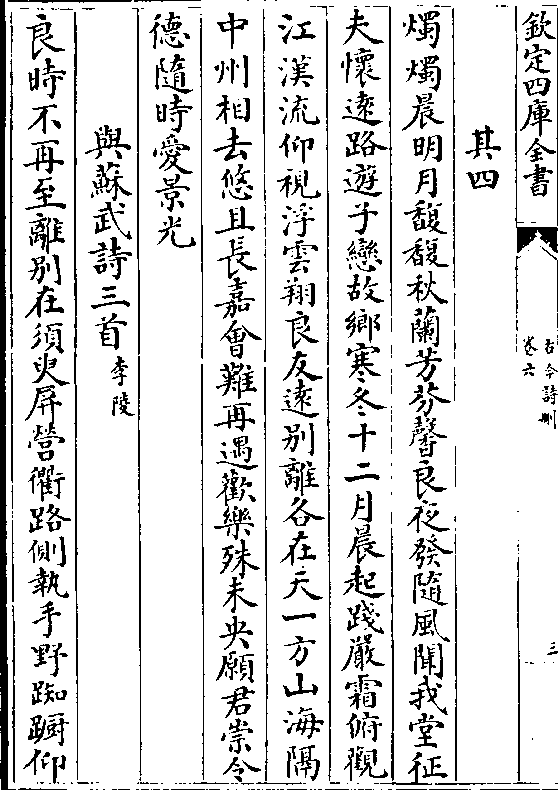 欽定四庫全書
古今詩刪
卷六
三
其四
燭燭晨明月馥馥秋蘭芳芬馨良夜發隨風聞我堂征
夫懷遠路遊子戀故鄉寒冬十二月晨起踐嚴霜俯觀
江漢流仰視浮雲翔良友遠别離各在天一方山海隔
中州相去悠且長嘉會難再遇歡樂殊未央願君崇令
德隨時愛景光
與蘇武詩三首 李陵
良時不再至離别在須臾屏營衢路側執手野踟蹰仰